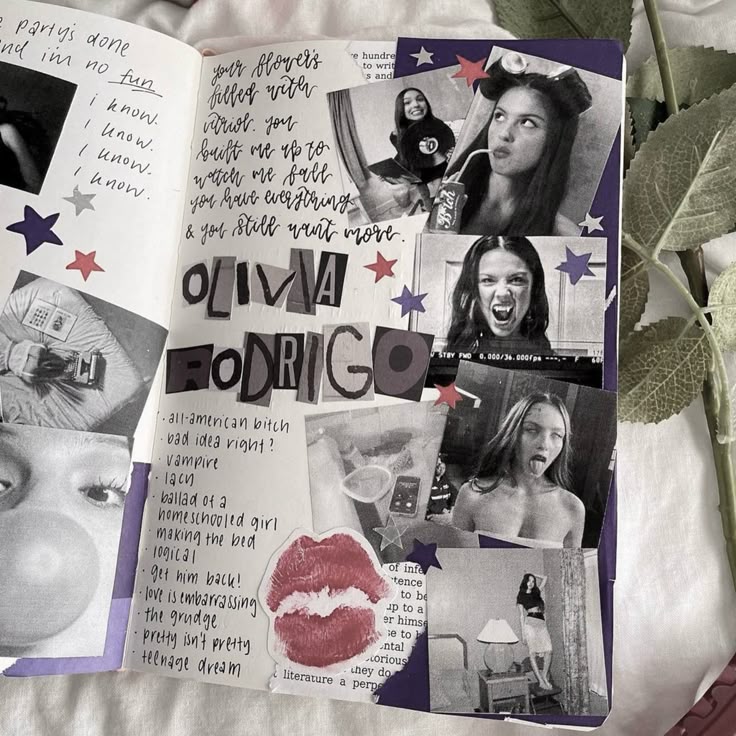 party's done
and i'm no fun
i know.
i know.
i know.
i know.
your flower's
filled with
vitriol. you
built me up to
watch me fall
you have everything
& you still want more.
OLIVIA
RODRIGO
· all-american bitch
· bad idea right?
· vampire
· lacy
· ballad of a
homeschooled girl
· making the bed
· logical
· get him back!
· love is embarrassing
· the grudge
· pretty isn't pretty
· teenage dream
e hundre
to writ
s and
Bitch
STBY FWD 0.000/36.000fps
of infe
tence
to be
up to a
er hims
se to
ntal
torious
they do
literature a perp